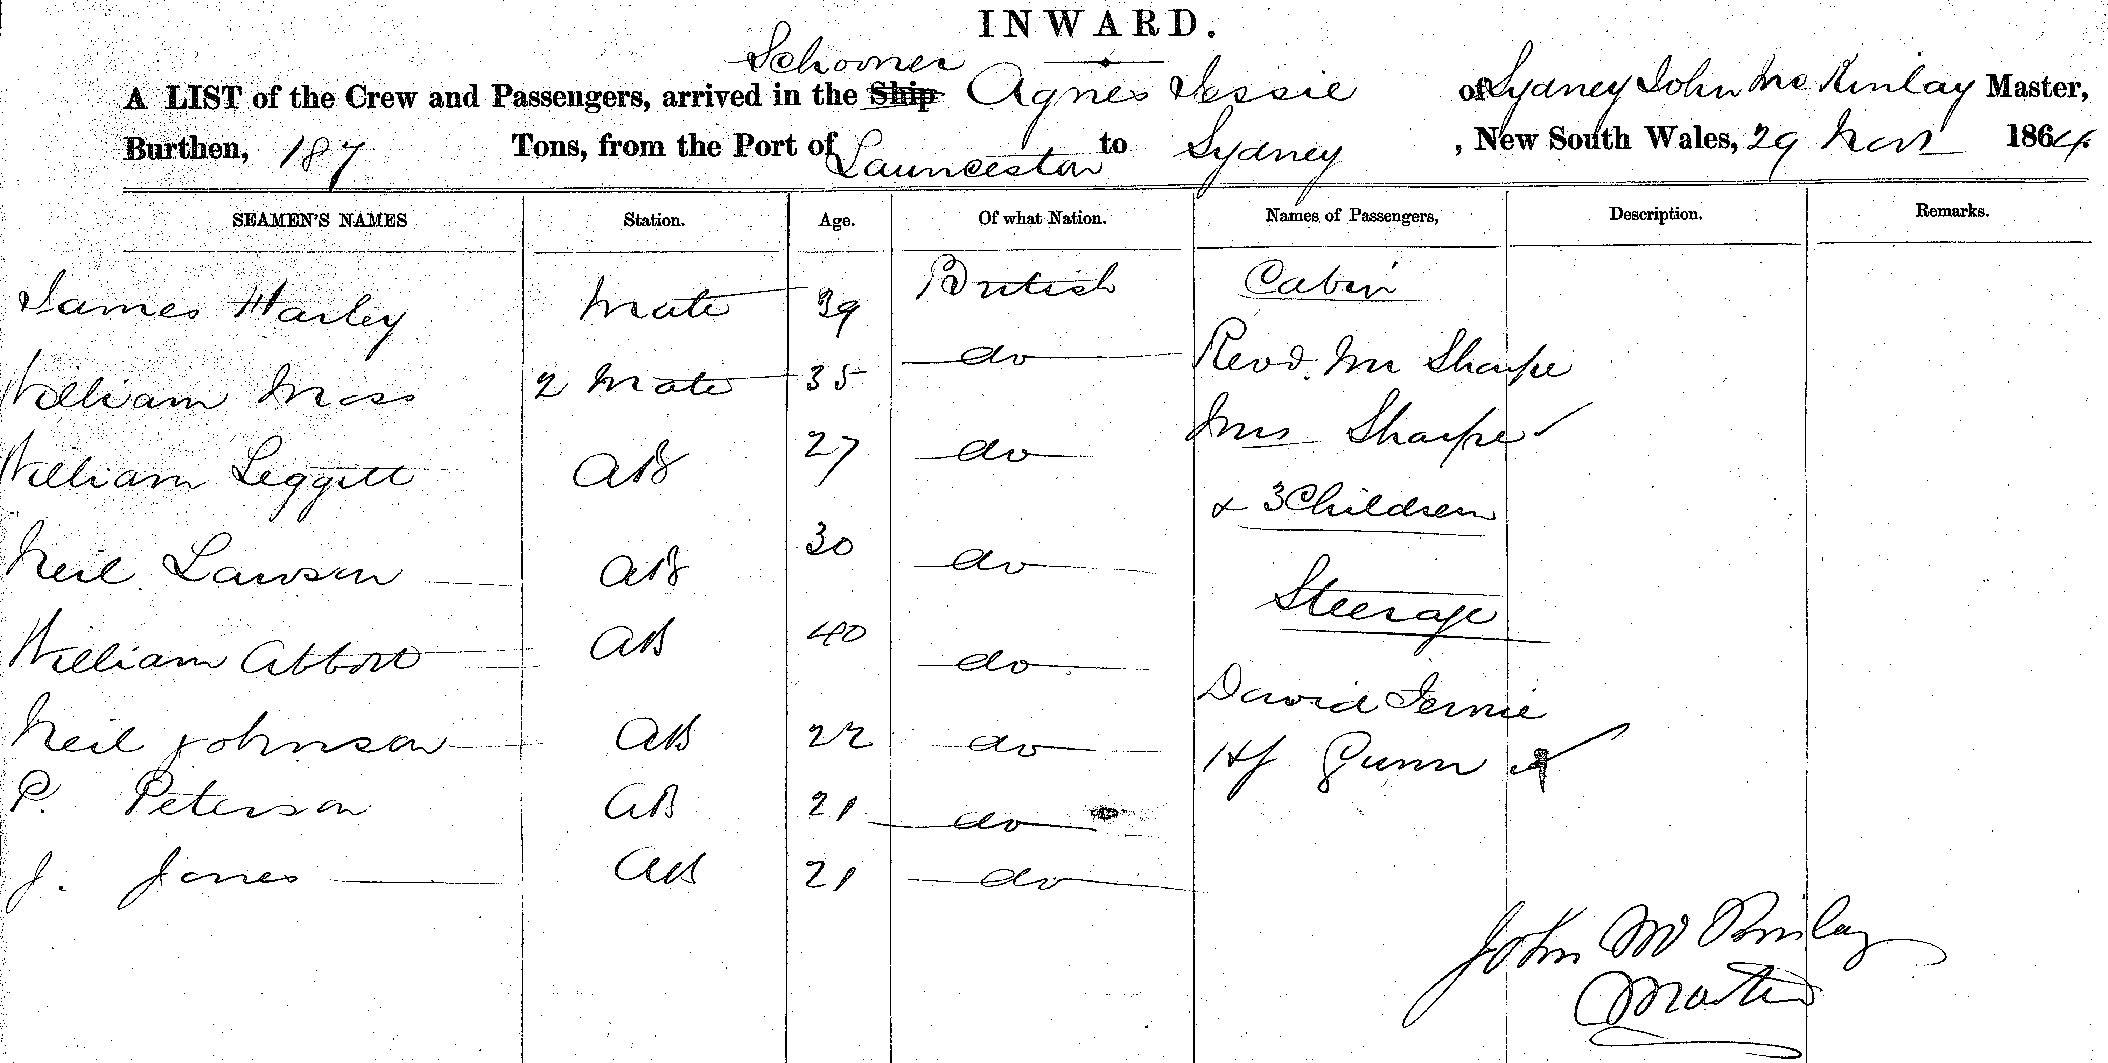 INWARD.
Schooner
A LIST of the Crew and Passengers, arrived in the Ship Agnes Jessie of Sydney John McKinlay Master,
Burthen, 187 Tons, from the Port of Launceston to Sydney, New South Wales, 29 Novr 1864
SEAMEN'S NAMES Station. Age. Of what Nation. Names of Passengers, Description. Remarks.
James Harley Mate 39 British Cabin
William Moss 2 Mate 35 do Revd. Mr Sharpe
William Leggitt AB 27 do Mrs Sharpe
& 3 Children
Neil Lawson AB 30 do Steerage
William Abbott AB 40 do David Fernie
Neil Johnson AB 22 do Gunn
P. Peterson AB 21 do
J. Jones AB 21 do
John McKinlay
Master